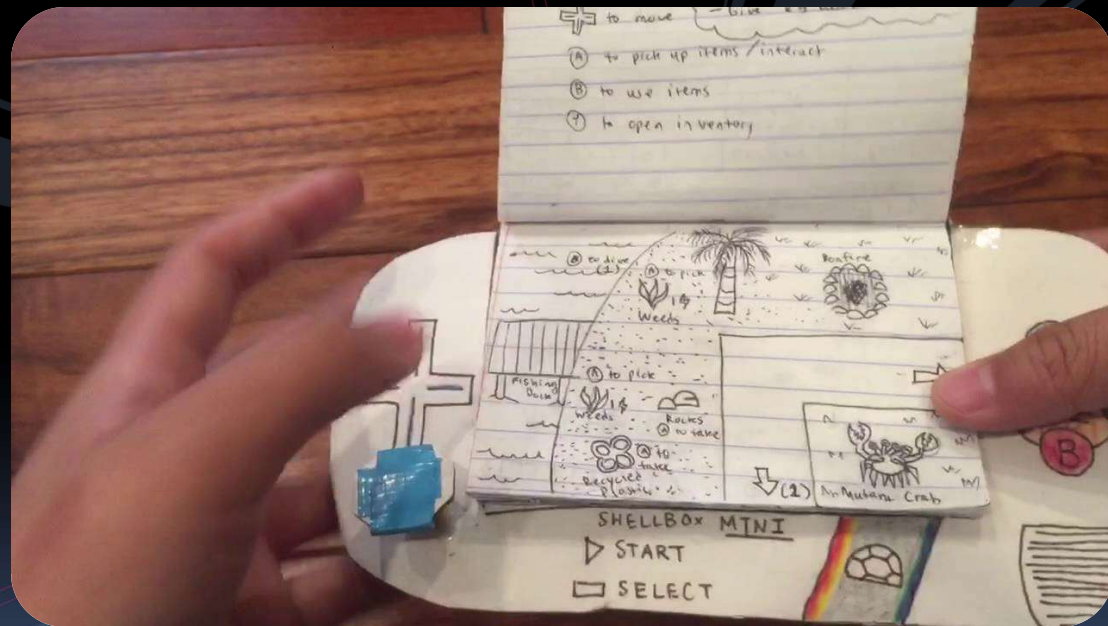 to move
- Give
A to pick up items / interact
B to use items
Y to open inventory
A to dive
(1)
A to pick
1$
Weeds
Bonfire
Fishing
Dock
A to pick
1$
Weeds
Rocks
A to take
A to
take
Recycled
Plastic
(2)
Mutant Crab
B
SHELLBOX MINI
START
SELECT